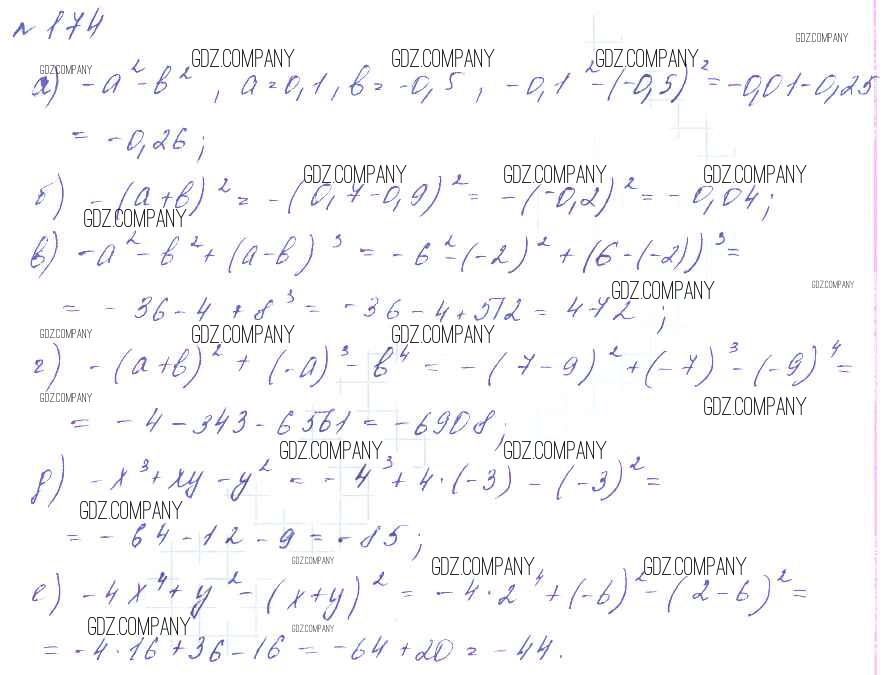 №174
GDZ.COMPANY GDZ.COMPANY GDZ.COMPANY GDZ.COMPANY
GDZ.COMPANY
а) -a² - b², a = 0,1, b = -0,5, -0,1² - (-0,5)² = -0,01 - 0,25
= -0,26;
GDZ.COMPANY GDZ.COMPANY GDZ.COMPANY
б) -(a+b)² = -(0,7-0,9)² = -(-0,2)² = -0,04;
GDZ.COMPANY
в) -a² - b² + (a-b)³ = -6² - (-2)² + (6-(-2))³ =
GDZ.COMPANY GDZ.COMPANY
= -36 - 4 + 8³ = -36 - 4 + 512 = 472;
GDZ.COMPANY GDZ.COMPANY GDZ.COMPANY
г) -(a+b)² + (-a)³ - b⁴ = -(7-9)² + (-7)³ - (-9)⁴ =
GDZ.COMPANY GDZ.COMPANY
= -4 - 343 - 6561 = -6908;
GDZ.COMPANY GDZ.COMPANY
д) -x³ + xy - y² = -4³ + 4·(-3) - (-3)² =
GDZ.COMPANY
= -64 - 12 - 9 = -85;
GDZ.COMPANY GDZ.COMPANY GDZ.COMPANY
е) -4x⁴ + y² - (x+y)² = -4·2⁴ + (-6)² - (2-6)² =
GDZ.COMPANY GDZ.COMPANY
= -4·16 + 36 - 16 = -64 + 20 = -44.